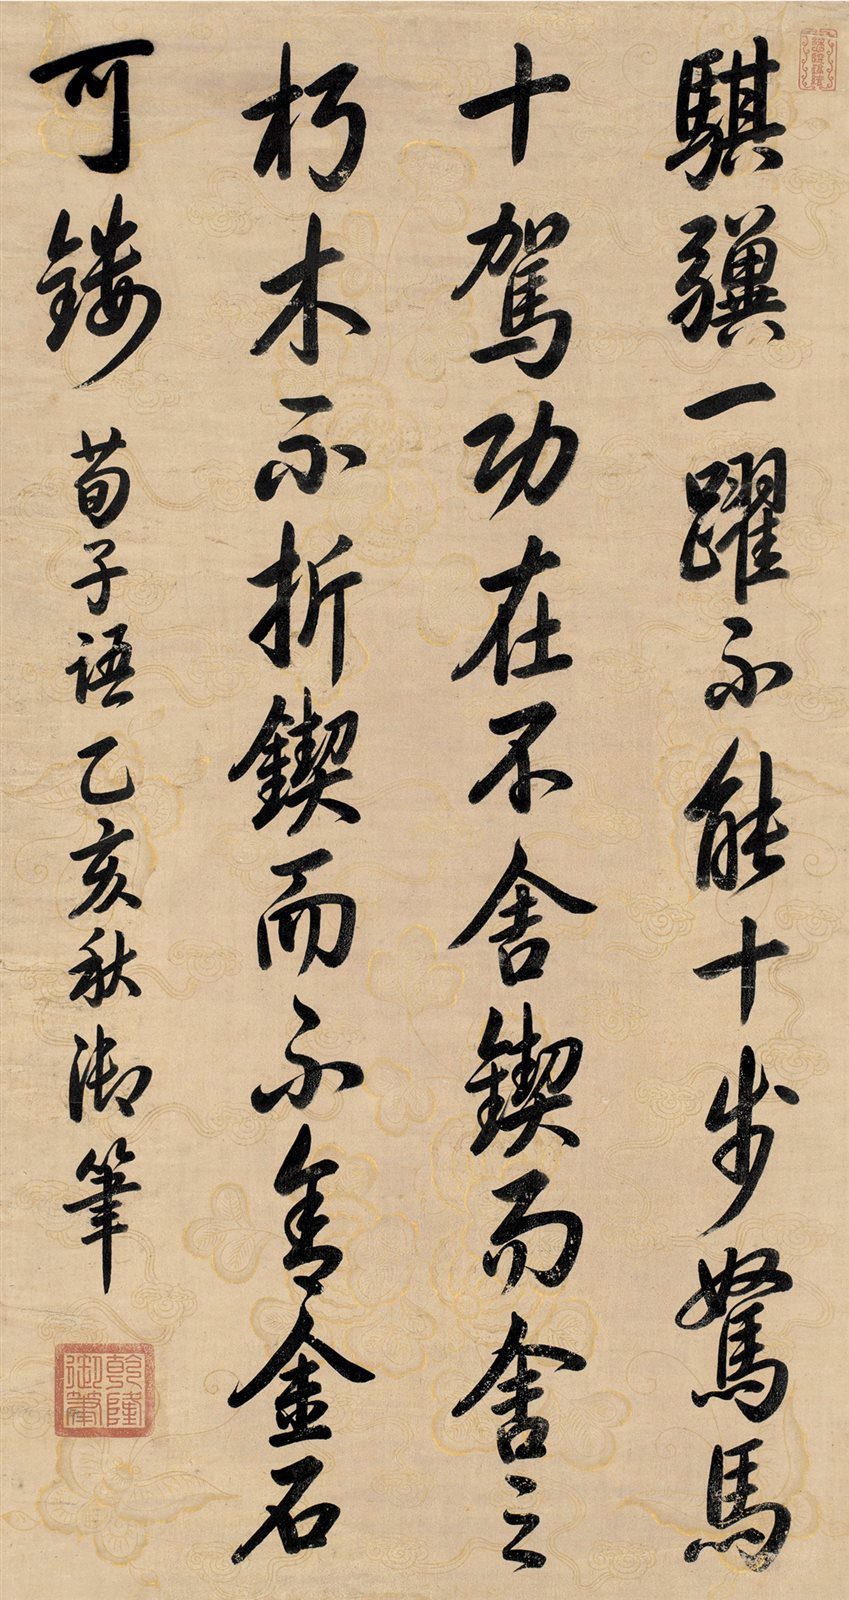 騏驥一躍不能十步駑馬
十駕功在不舍鍥而舍之
朽木不折鍥而不舍金石
可鏤
荀子語乙亥秋御筆
乾隆御筆